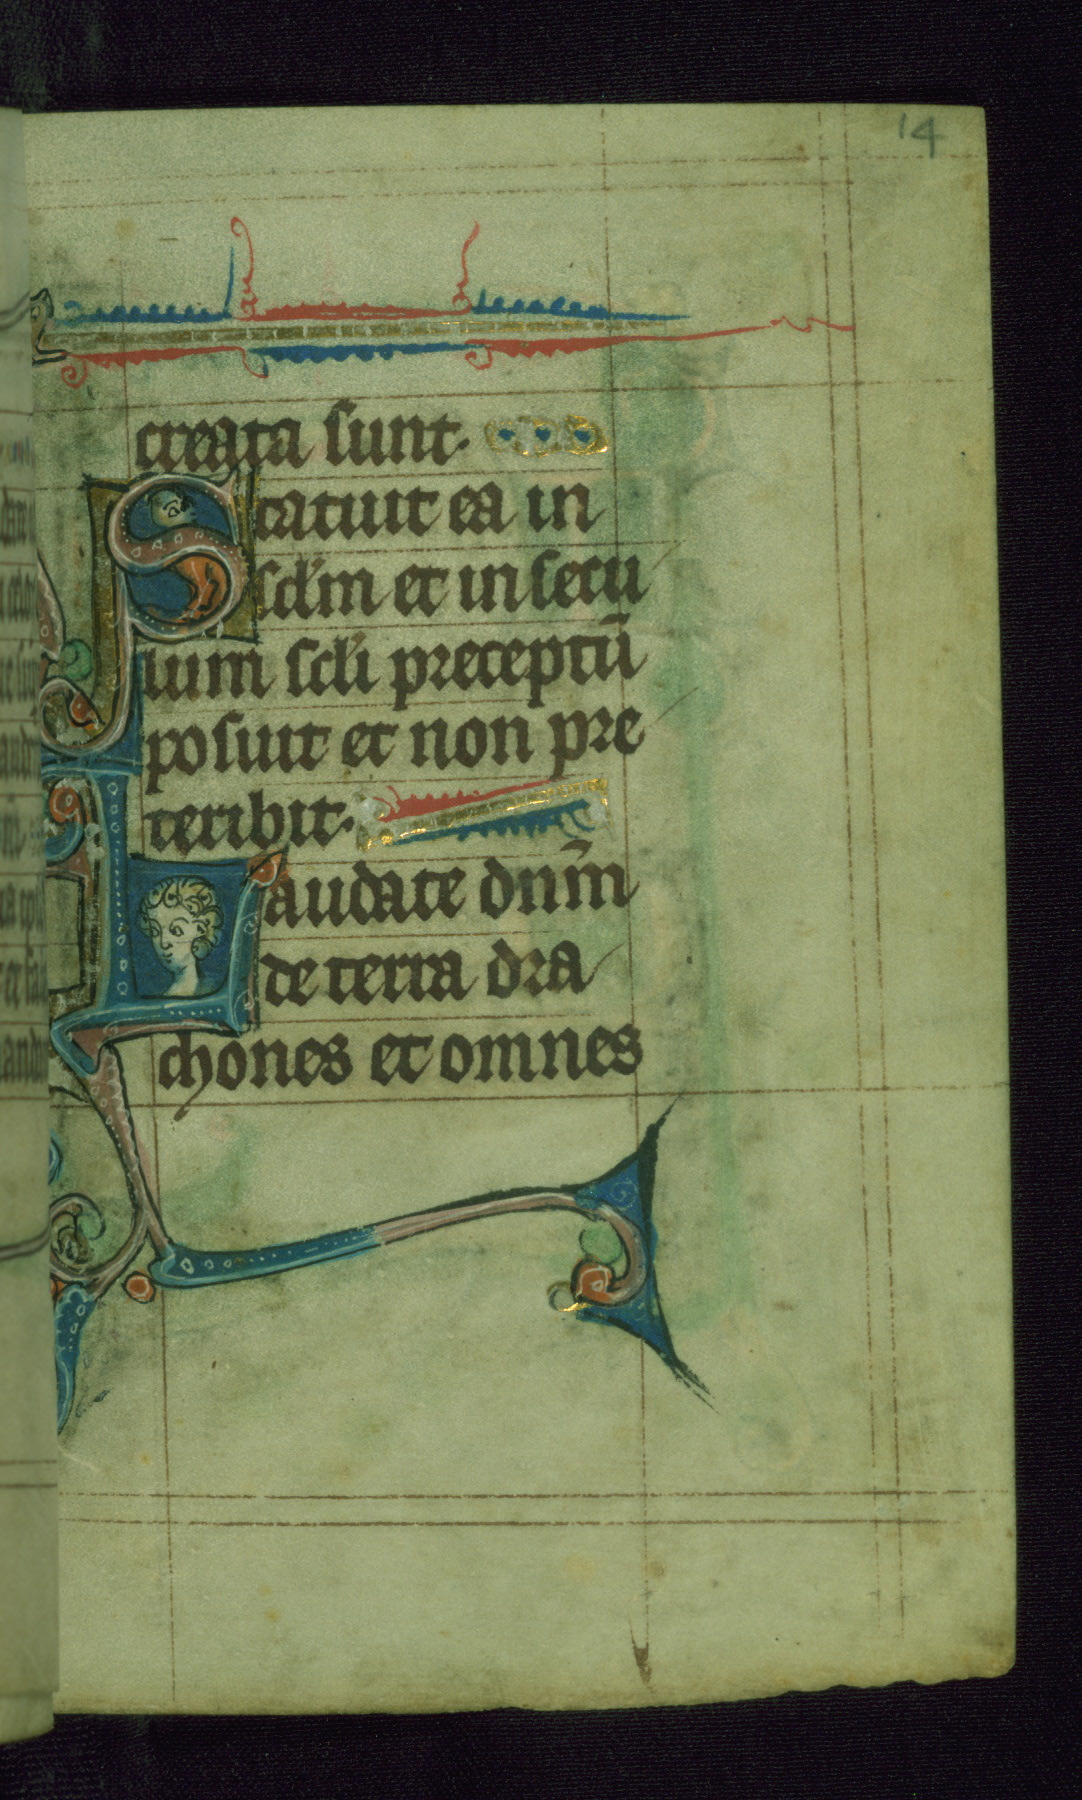 14
creata sunt.
Statuit ea in
scl̄m et in secu
lum scl̄i preceptū
posuit et non pre
teribit.
Laudate dn̄m
de terra dra
chones et omnes